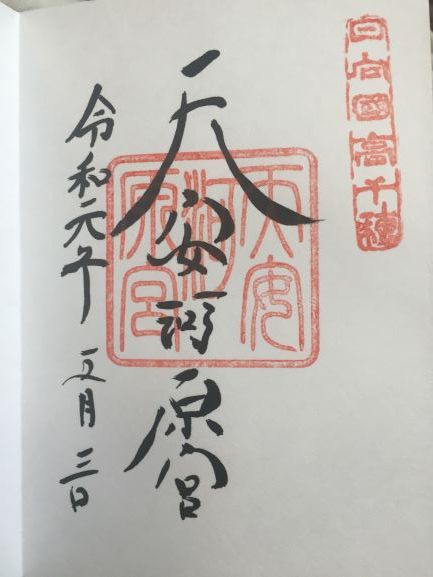 日向國高千穂
天安河原宮
天安
河
原宮
令和元年 五月 三日